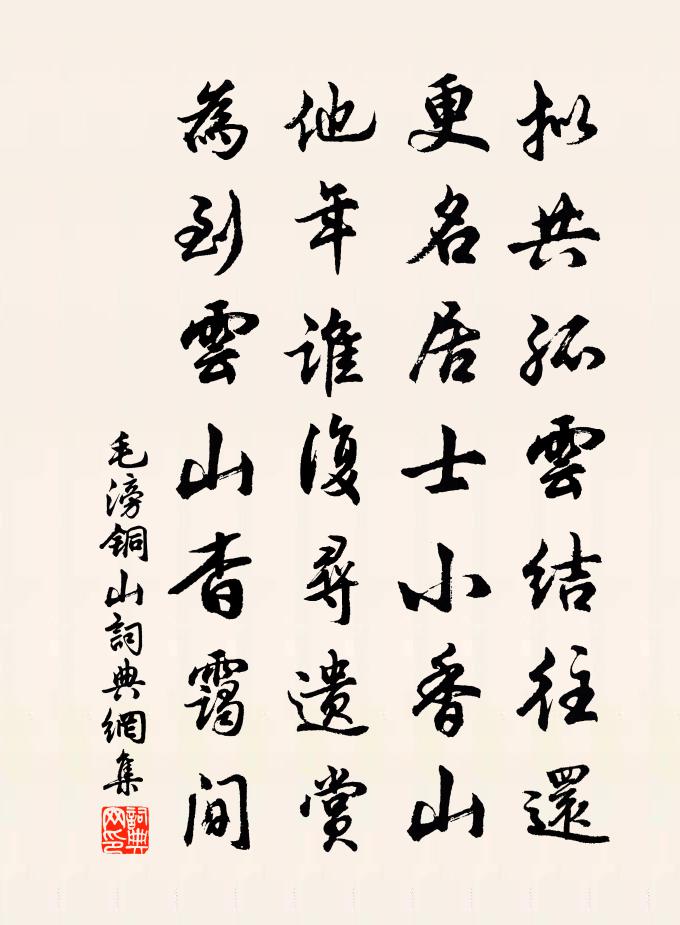 拟共孤雲結往還
更名居士小香山
他年誰復尋遺賞
為到雲山杳靄間
毛滂銅山詞典網集
詞典网印